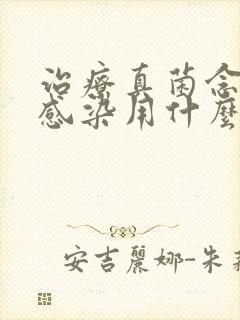 治療真菌念
感染用什麼
安吉麗娜-朱